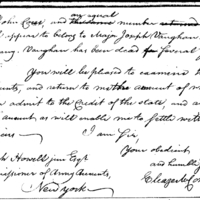 an equal
John Cress, and number
appears to belong to Major Joseph Vaughan
Vaughan has been dead for several
You will be pleased to examine th
and return to me the amount of w
admit to the Credit of the state, and a
amount, as will enable me to settle wit
I am Sir
Your obedient
and humble
Howell junr Esqr
Commissioner of Army Accounts,
New York
Eleazer